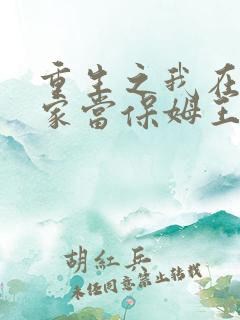 重生之我在
家当保姆王
胡红兵
未经同意禁止转载